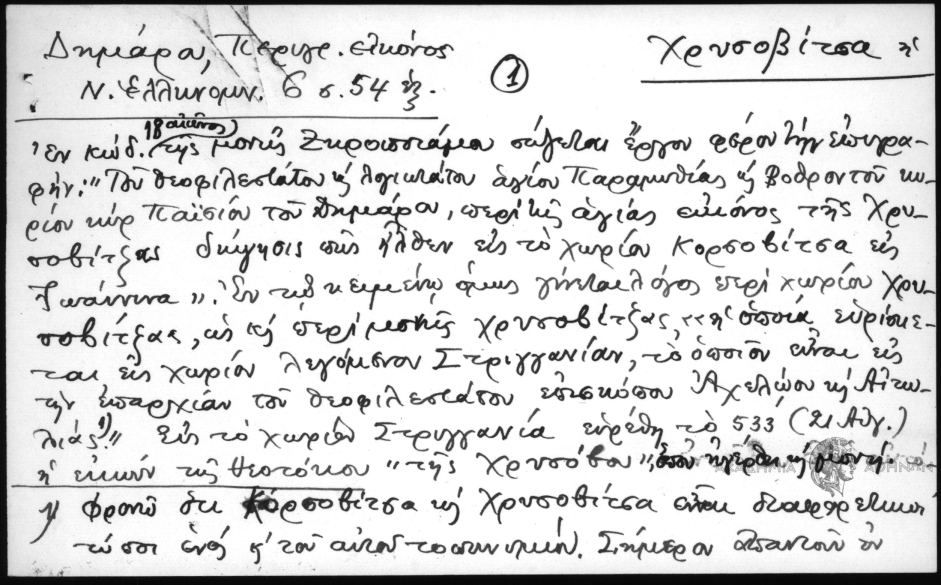 Δημάρα, Περιγρ. εικόνος
Χρυσοβίτσα ἡ
Ν. Ἑλληνομν. 6 σ. 54 ἑξ.
1
18 αἰῶνος
Ἐν κώδ. (τῆς μονῆς Ξηροποτάμου σώζεται ἔργον φέρον τὴν ἐπιγρα-
φήν: "Τοῦ θεοφιλεστάτου κ λογιωτάτου ἁγίου Παραμυθίας κ Βοθροντοῦ κυ-
ρίου κύρ Παϊσίου τοῦ Δημάρα, περὶ τῆς ἁγίας εἰκόνος τῆς Χρυ-
σοβίτζας διήγησις πῶς ἦλθεν εἰς τὸ χωρίον Κορσοβίτσα εἰς
Ἰωάννινα". Ἐν τῷ κειμένῳ ὅμως γίνεται λόγος περὶ χωρίου Χρυ-
σοβίτζας, ὡς κ περὶ μονῆς Χρυσοβίτζας, "ἡ ὁποία εὑρίσκε-
ται εἰς χωρίον λεγόμενον Στριγγανίαν, τὸ ὁποῖον εἶναι εἰς
τὴν ἐπαρχίαν τοῦ θεοφιλεστάτου ἐπισκόπου Ἀχελῴου κ Αἰτω-
λίας¹⁾" Εἰς τὸ χωρίον Στριγγανία εὑρέθη τὸ 533 (21 Αὐγ.)
ἡ εἰκών τῆς Θεοτόκου "τῆς Χρυσόβου", ὅπου ἠγέρθη κ μονή.
1) Φρονῶ ὅτι Κορσοβίτσα κ Χρυσοβίτσα εἶναι διαφορετικοὶ
τύποι ἑνός κ τοῦ αὐτοῦ τοπωνυμίου. Σήμερον ἀπαντοῦν